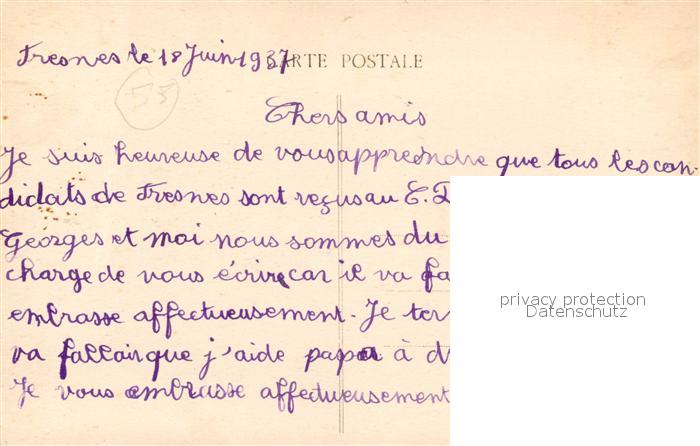 Fresnes le 18 Juin 1937
CARTE POSTALE
55
Chers amis
Je suis heureuse de vous apprendre que tous les can-
didats de Fresnes sont reçus au C.
Georges et moi nous sommes du
charge de vous écrire car il va fa
embrasse affectueusement. Je ter
va falloir que j'aide papa à d
Je vous embrasse affectueusement
privacy protection
Datenschutz